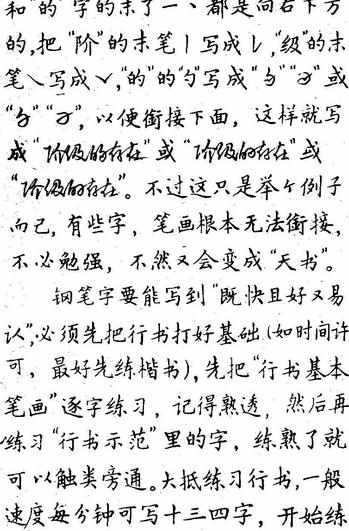 和“的”字的末了一、都是向右下方
的,把“阶”的末笔丨写成㇙,“级”的末
笔㇏写成㇙,“的”的“勺”写成“”“”或
“”“”, 以便衔接下面, 这样就写
成“阶级的存在”或“阶级的存在”或
“阶级的存在”。不过这只是举个例子
而已, 有些字, 笔画根本无法衔接,
不必勉强, 不然又会变成“天书”。
钢笔字要能写到“既快且好又易
认”,必须先把行书打好基础(如时间许
可, 最好先练楷书), 先把“行书基本
笔画”逐字练习, 记得熟透, 然后再
练习“行书示范”里的字, 练熟了就
可以触类旁通。大抵练习行书,一般
速度每分钟可写十三四字, 开始练